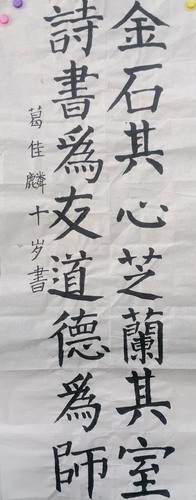 金石其心芝蘭其室
詩書爲友道德爲師
葛佳麟十岁書